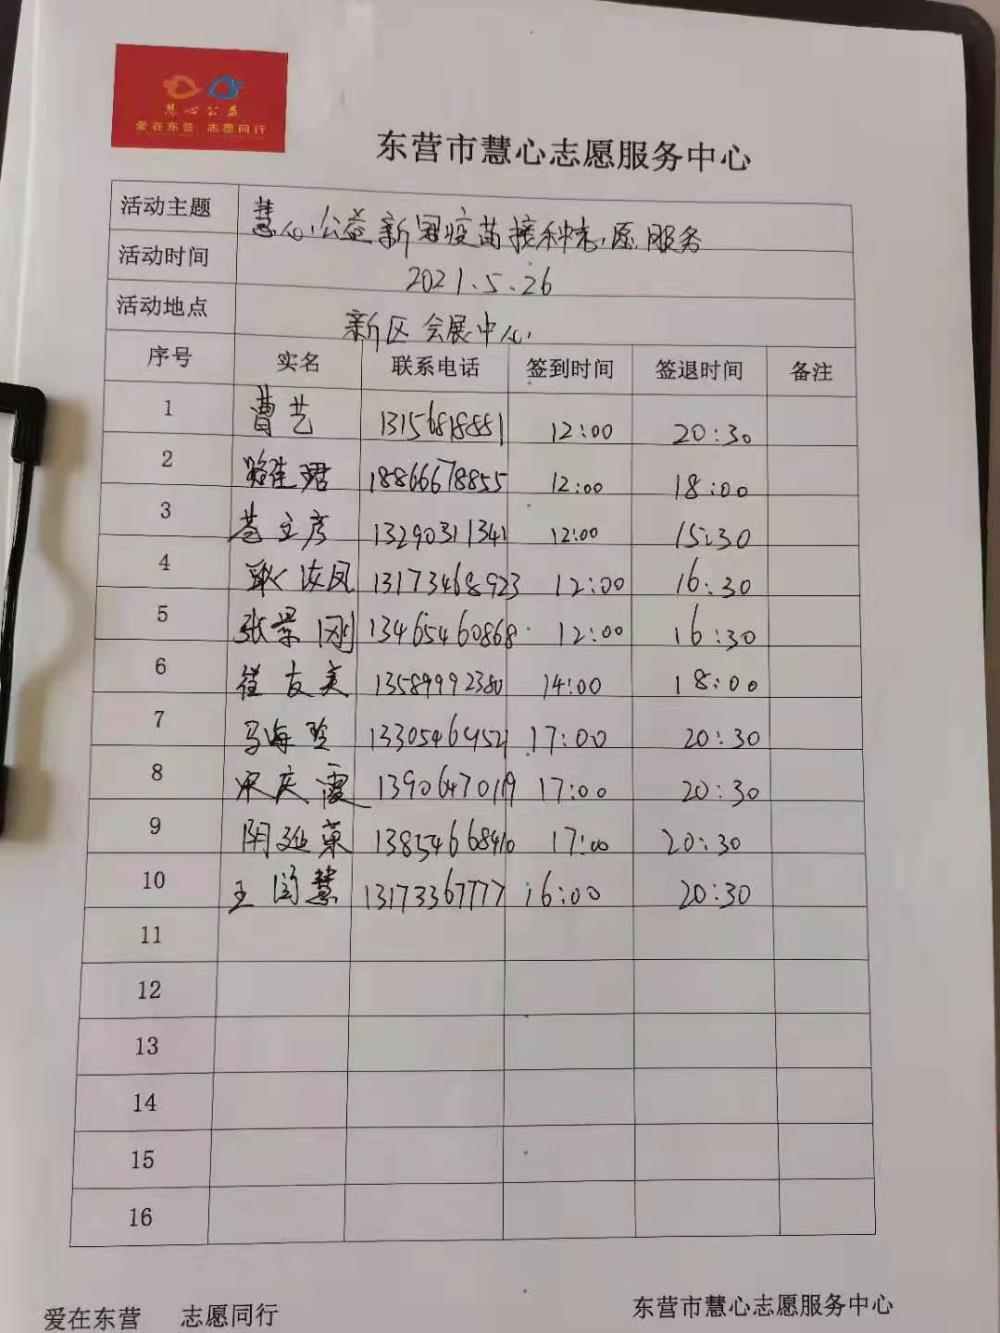 慧心公益
爱在东营 志愿同行
东营市慧心志愿服务中心
活动主题 慧心公益新冠疫苗接种志愿服务
活动时间 2021.5.26
活动地点 新区会展中心
序号 实名 联系电话 签到时间 签退时间 备注
1 曹艺 13156818881 12:00 20:30
2 18866678855 12:00 18:00
3 13290311341 12:00 15:30
4 13173468923 12:00 16:30
5 张景刚 13465460868 12:00 16:30
6 崔友美 13589992380 14:00 18:00
7 马海玲 17:00 20:30
8 宋庆霞 13906470119 17:00 20:30
9 阴延菊 13854668410 17:00 20:30
10 王闰慧 13173367777 16:00 20:30
11
12
13
14
15
16
爱在东营 志愿同行 东营市慧心志愿服务中心